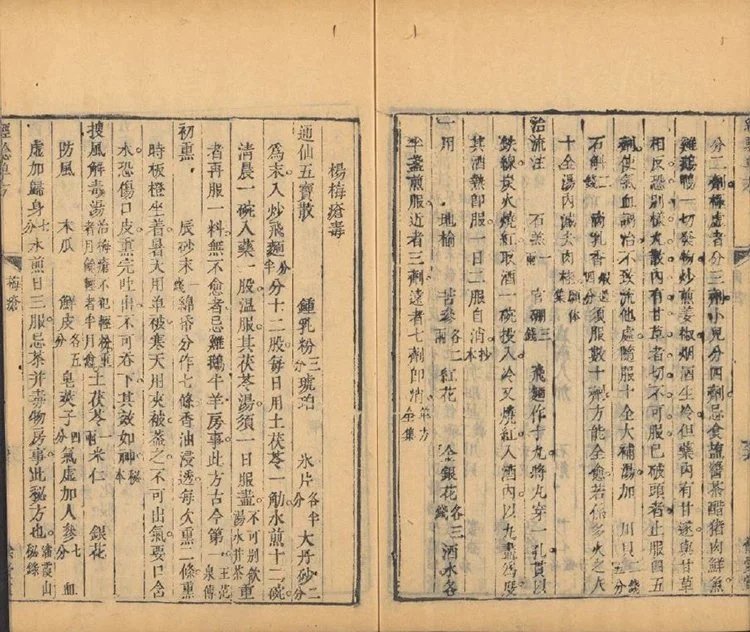 分二劑極虛者分三劑小兒分四劑忌食塩醬茶醋猪肉鮮魚
雞鵝鴨一切發物炒煎姜椒烟酒生冷但藥內有甘遂與甘草
相反恐別樣丸散內有甘草者切不可服已破頭者止服四五
劑使氣血調治不致流他處隨服十全大補湯加 川貝五分
石斛二錢 滴乳香四分 須服數十劑方能全愈若係多火之人
十全湯內減去肉桂
治流注 石羔一両 官硼三錢 飛麵作十九將丸穿一孔貫以
鉄線炭火燒紅取酒一碗投入冷又燒紅入酒內以九盡為度
其酒熱即服一日二服自消抄本
一用 地榆 苦參各二両 紅花 金銀花各三錢 酒水各
半盞煎服近者三劑遠者七劑即消
楊梅瘡毒
通仙五寶散 鍾乳粉三分 琥珀 氷片各半分 大丹砂二分
為末入炒飛麵半分 分十二股每日用土茯苓一觔水煎十二碗
清晨一碗入藥一股溫服其茯苓湯須一日服盡不可別飲湯水并茶重
者再服一料無不愈者忌雞鵝牛羊房事此方古今第一王范泉傳
初熏 辰砂末一錢 綿帋分作七條香油浸透每次熏二條熏
時板櫈坐者暑天用单被寒天用夾被蓋之不可出氣要口含
水恐傷口皮熏完吐出不可吞下其效如神秘本
搜風解毒湯治梅瘡不犯輕粉重者月餘輕者半月愈 土茯苓一両 米仁 銀花
防風 木瓜 鮮皮各五分 皂莢子四分 氣虛加人參七分 血
虛加歸身七分 水煎日三服忌茶并毒物房事此秘方也瀠霞山秘錄
梅瘡